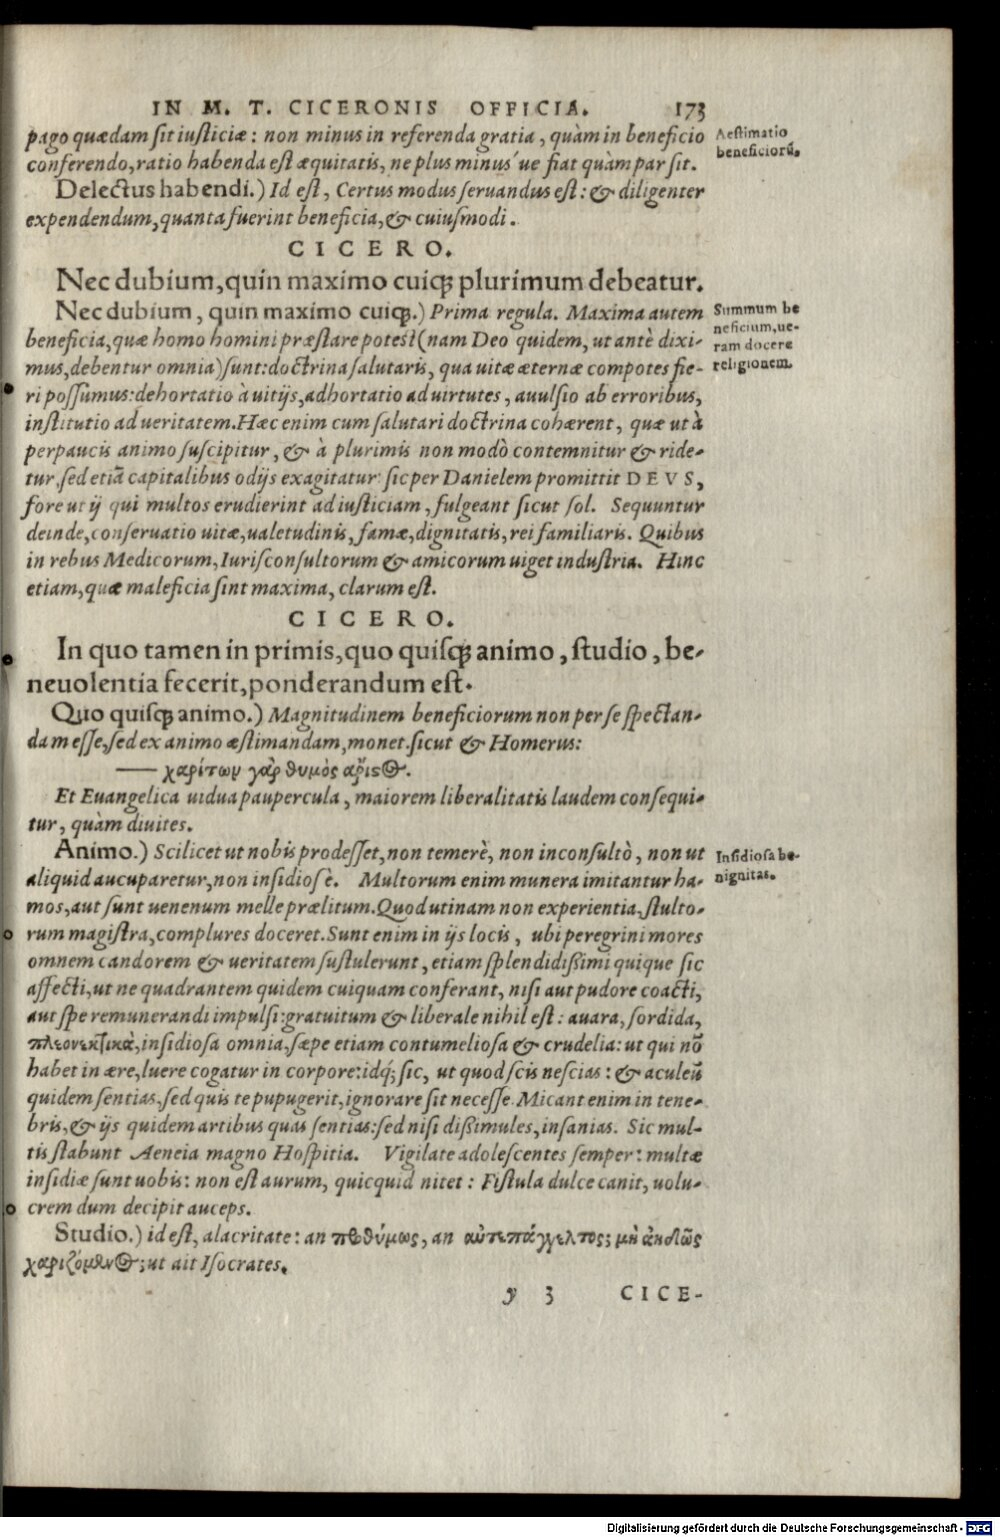 IN M. T. CICERONIS OFFICIA. 173
pago quædam sit iusticiæ: non minus in referenda gratia, quàm in beneficio
conferendo, ratio habenda est æquitatis, ne plus minus´ue fiat quàm par sit.
Aestimatio
beneficiorũ.
Delectus habendi.) Id est, Certus modus seruandus est: & diligenter
expendendum, quanta fuerint beneficia, & cuiusmodi.
CICERO.
Nec dubium, quin maximo cuiqꝫ plurimum debeatur.
Nec dubium, quin maximo cuiqꝫ.) Prima regula. Maxima autem
beneficia, quæ homo homini præstare potest (nam Deo quidem, ut antè dixi-
mus, debentur omnia) sunt: doctrina salutaris, qua uitæ æternæ compotes fie-
ri possumus: dehortatio à uitijs, adhortatio ad uirtutes, auulsio ab erroribus,
institutio ad ueritatem. Hæc enim cum salutari doctrina cohærent, quæ ut à
perpaucis animo suscipitur, & à plurimis non modò contemnitur & ride-
tur, sed etiã capitalibus odijs exagitatur: sic per Danielem promittit DEVS,
fore ut ij qui multos erudierint ad iusticiam, fulgeant sicut sol. Sequuntur
deinde, conseruatio uitæ, ualetudinis, famæ, dignitatis, rei familiaris. Quibus
in rebus Medicorum, Iurisconsultorum & amicorum uiget industria. Hinc
etiam, quæ maleficia sint maxima, clarum est.
Summum be
neficium, ue-
ram docere
religionem.
CICERO.
In quo tamen in primis, quo quisqꝫ animo, studio, be-
neuolentia fecerit, ponderandum est.
Quo quisqꝫ animo.) Magnitudinem beneficiorum non per se spectan-
dam esse, sed ex animo æstimandam, monet. sicut & Homerus:
—— χαρίτων γὰρ θυμὸς ἄριστος.
Et Euangelica uidua paupercula, maiorem liberalitatis laudem consequi-
tur, quàm diuites.
Animo.) Scilicet ut nobis prodesset, non temerè, non inconsultò, non ut
aliquid aucuparetur, non insidiosè. Multorum enim munera imitantur ha-
mos, aut sunt uenenum melle prælitum. Quod utinam non experientia, stulto-
rum magistra, complures doceret. Sunt enim in ijs locis, ubi peregrini mores
omnem candorem & ueritatem sustulerunt, etiam splendidißimi quique sic
affecti, ut ne quadrantem quidem cuiquam conferant, nisi aut pudore coacti,
aut spe remunerandi impulsi: gratuitum & liberale nihil est: auara, sordida,
πλεονεκτικὰ, insidiosa omnia, sæpe etiam contumeliosa & crudelia: ut qui nõ
habet in ære, luere cogatur in corpore: idqꝫ sic, ut quod scis nescias: & aculeũ
quidem sentias, sed quis te pupugerit, ignorare sit necesse. Micant enim in tene-
bris, & ijs quidem artibus quas sentias: sed nisi dißimules, insanias. Sic mul-
tis stabunt Aeneia magno Hospitia. Vigilate adolescentes semper: multæ
insidiæ sunt uobis: non est aurum, quicquid nitet: Fistula dulce canit, uolu-
crem dum decipit auceps.
Insidiosa be-
nignitas.
Studio.) id est, alacritate: an προθύμως, an αὐτεπάγγελτος; μὴ ἀηδῶς
χαριζόμενος; ut ait Isocrates.
y 3 CICE-
Digitalisierung gefördert durch die Deutsche Forschungsgemeinschaft - DFG